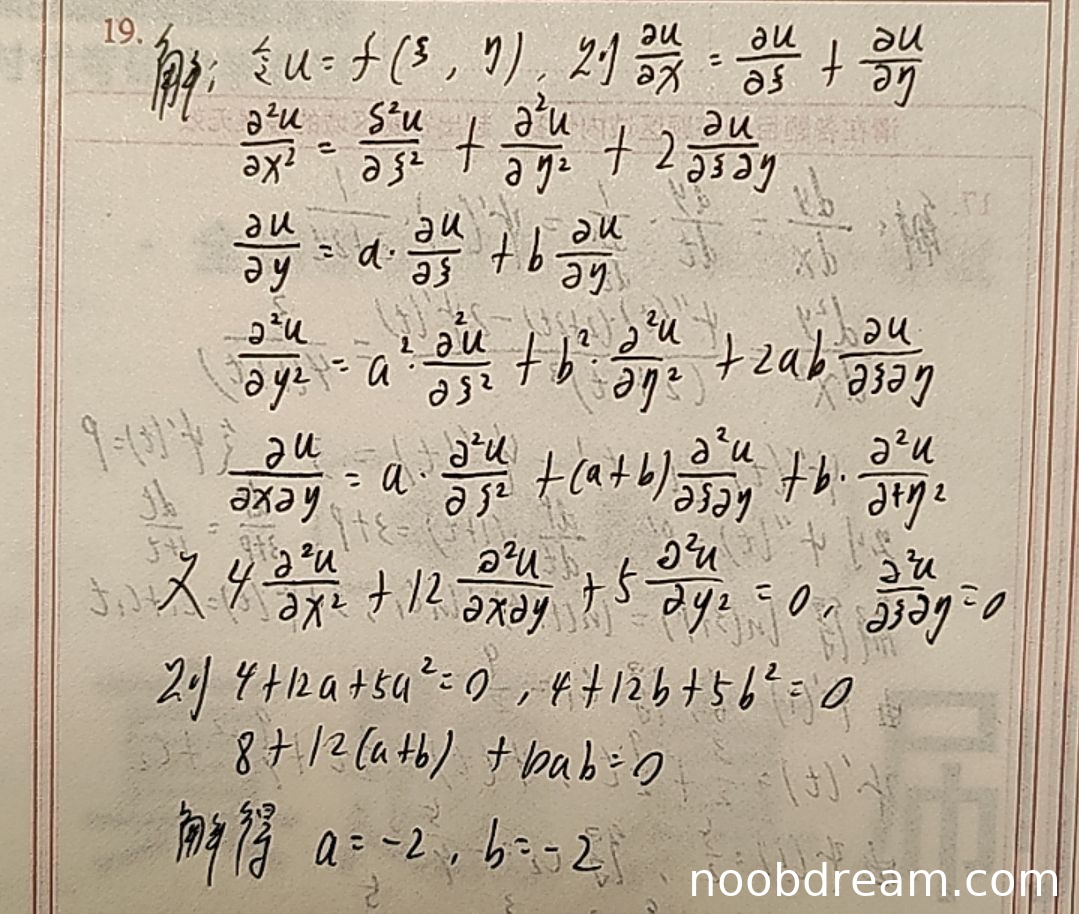 19.
解: 令 u = f(ξ, η), 则 ∂u/∂x = ∂u/∂ξ + ∂u/∂η
∂²u/∂x² = δ²u/∂ξ² + ∂²u/∂η² + 2 ∂u/∂ξ∂η
∂u/∂y = a·∂u/∂ξ + b ∂u/∂η
∂²u/∂y² = a²·∂²u/∂ξ² + b²·∂²u/∂η² + 2ab ∂u/∂ξ∂η
∂u/∂x∂y = a·∂²u/∂ξ² + (a+b) ∂²u/∂ξ∂η + b·∂²u/∂η²
又 4 ∂²u/∂x² + 12 ∂²u/∂x∂y + 5 ∂²u/∂y² = 0, ∂²u/∂ξ∂η = 0
则 4+12a+5a²=0, 4+12b+5b²=0
8+12(a+b)+10ab=0
解得 a=-2, b=-2
noobdream.com